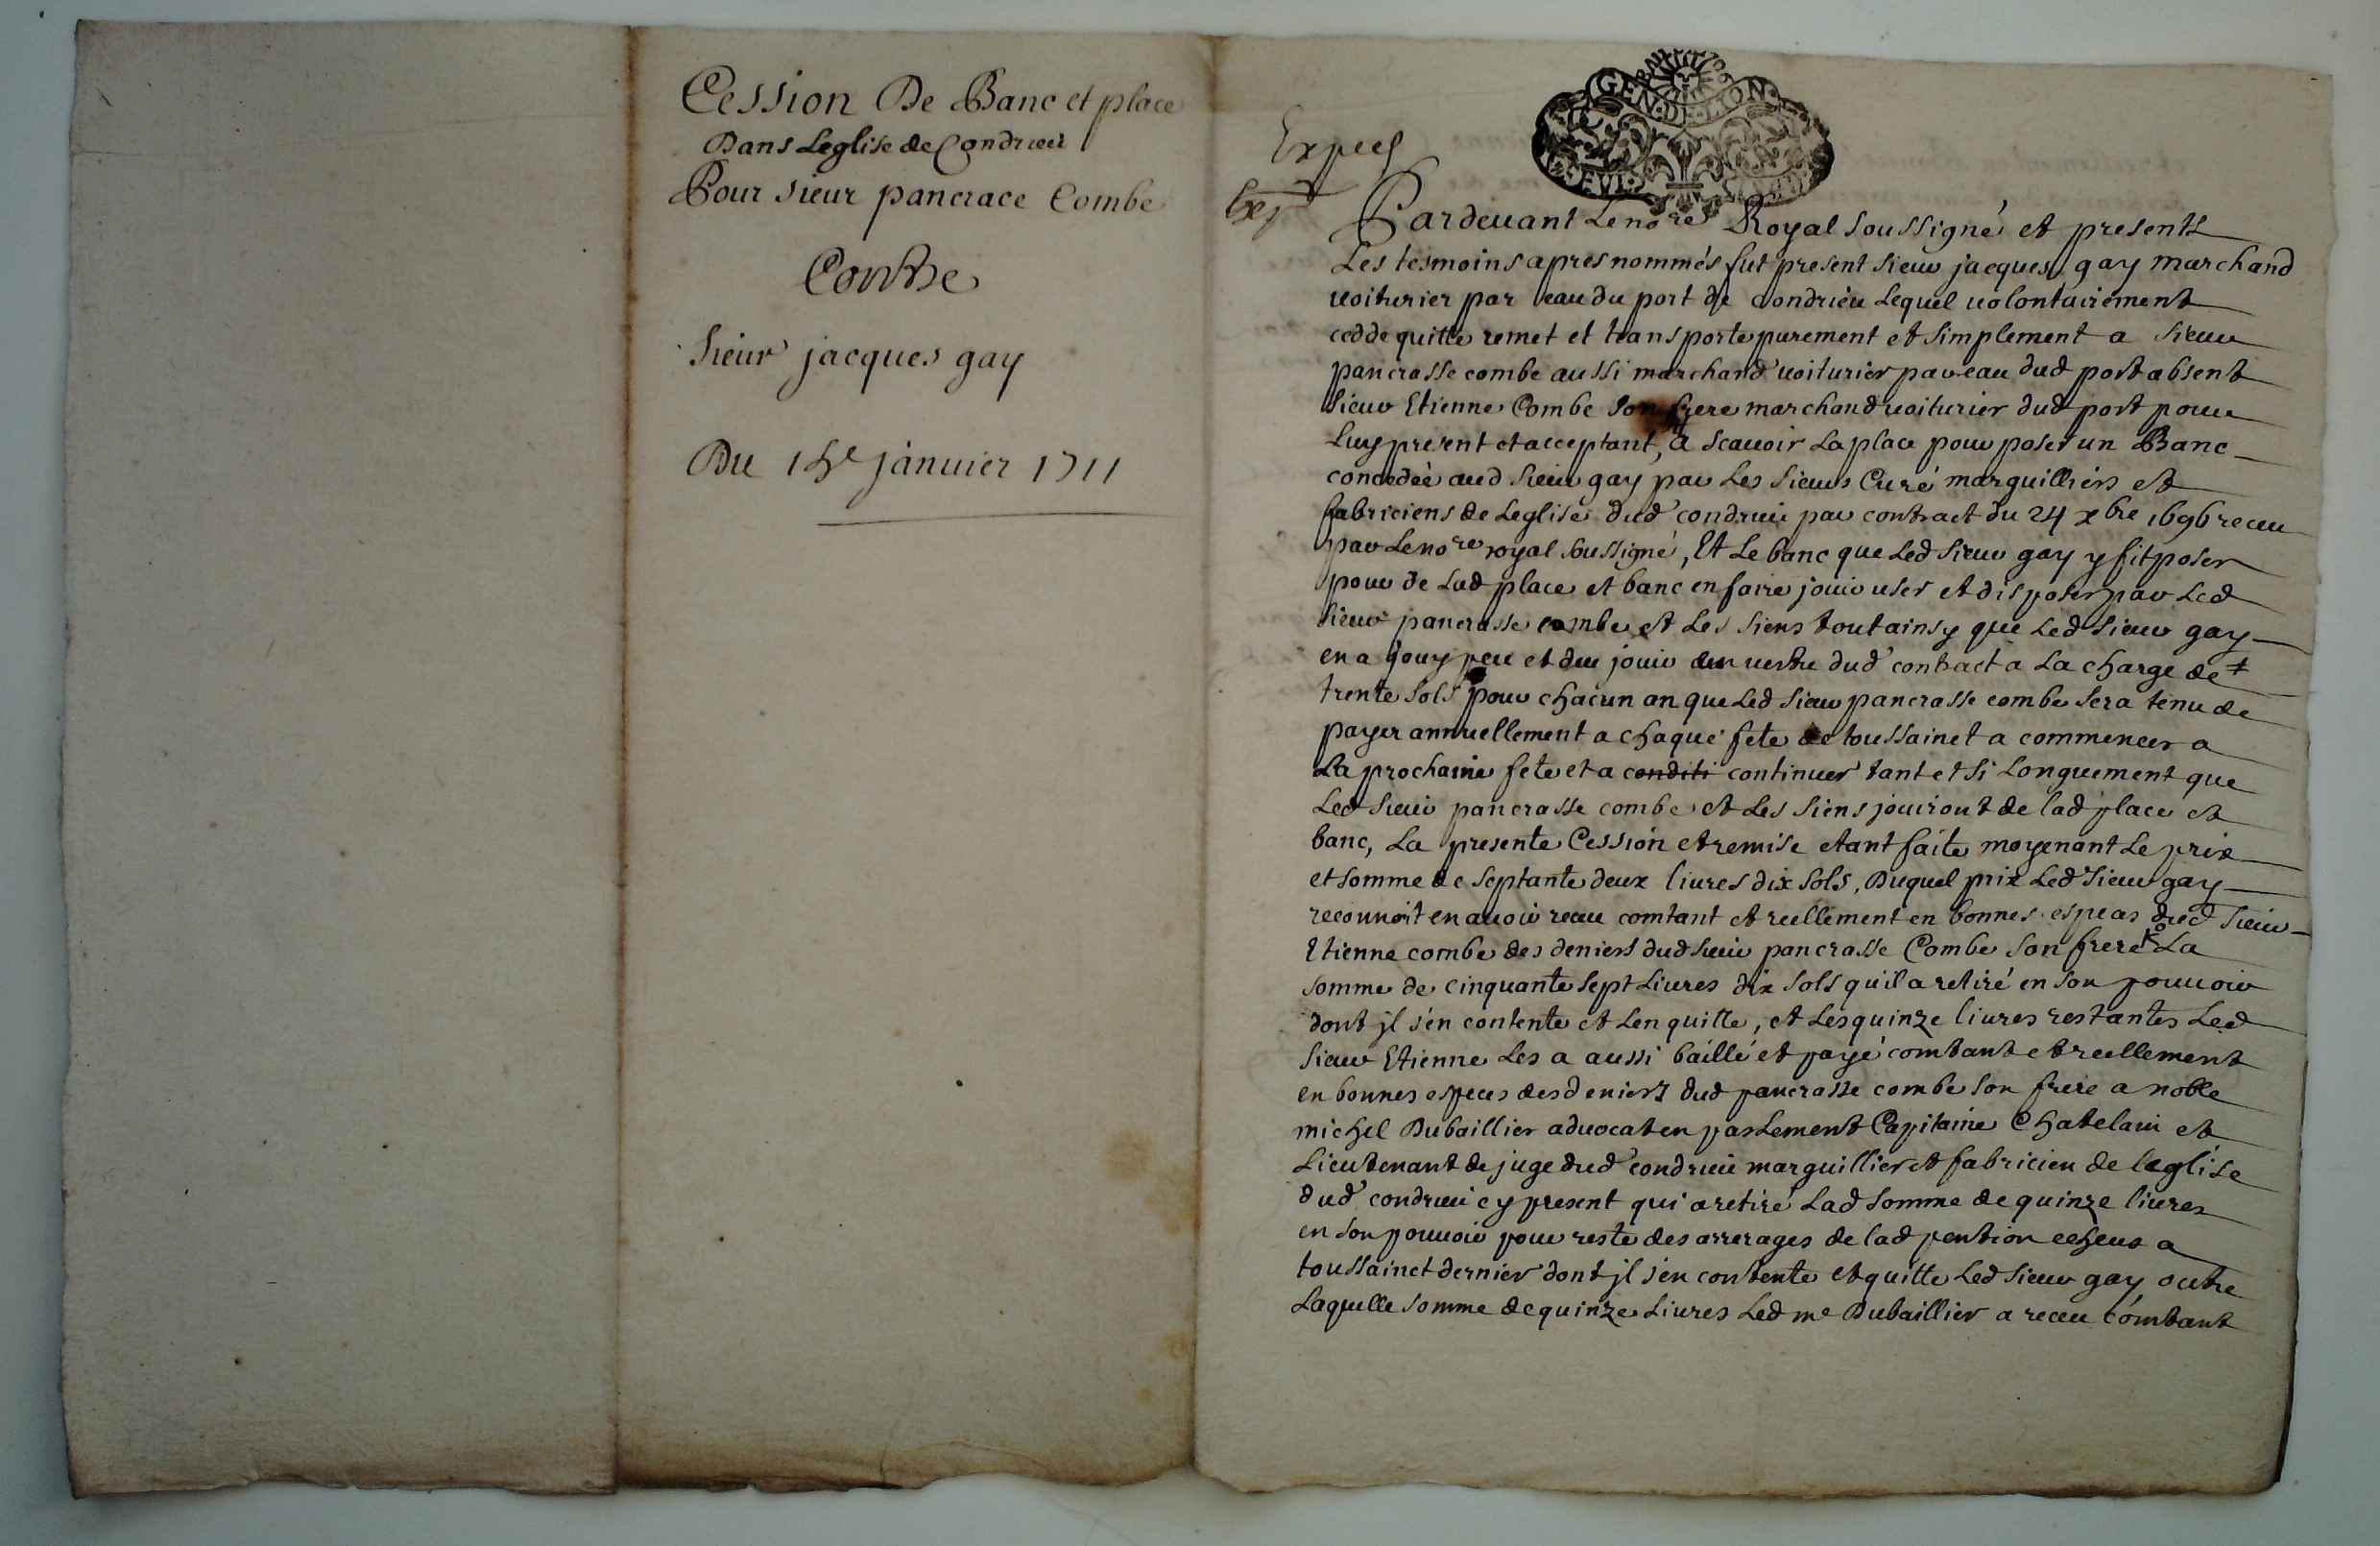 Cession De Banc et place
Dans Leglise de Condrieu
Pour sieur pancrace Combe
Contre
Sieur jacques gay
Du 14e janvier 1711
Exped
GEN·DE·LYON
Pardevant Le nore Royal soussigné et presents
Les tesmoins apres nommés fut present sieur jacques gay marchand
voiturier par eau du port de Condrieu Lequel volontairement
cedde quitte remet et transporte purement et simplement a sieur
pancrasse combe aussi marchand voiturier par eau dud port absent
sieur Etienne Combe son frere marchand voiturier dud port pour
Luy present et acceptant, a scavoir La place pour poser un Banc
concedée aud sieur gay par Les sieurs Curé marguilliers et
fabriciens de Leglise dud condrieu par contract du 24 xbre 1696 receu
par Le nore royal soussigné, Et Le banc que Led sieur gay y fit poser
pour de Lad place et banc en faire jouir user et disposer par Led
sieur pancrasse combe et Les siens tout ainsy que Led sieur gay
en a jouy peu et deu jouir en vertu dud contract a La charge de ≠
trente sols pour chacun an que Led sieur pancrasse combe sera tenu de
payer annuellement a chaque fete de toussainct a commencer a
La prochaine fete et a conditi continuer tant et si Longuement que
Led sieur pancrasse combe et Les siens jouiront de lad place et
banc, La presente Cession et remise etant faite moyenant Le prix
et somme de septante deux livres dix sols, Duquel prix Led sieur gay
reconnoit en avoir receu comtant et reellement en bonnes especes dud sieur
Etienne combe des deniers dud sieur pancrasse Combe son frere La
somme de cinquante sept Livres dix sols qu'il a retiré en son pouvoir
dont jl s'en contente et Len quitte, et Les quinze livres restantes Led
sieur Etienne Les a aussi baillé et payé comtant et reellement
en bonnes especes des deniers dud pancrasse combe son frere a noble
michel Dubaillier advocat en parlement Capitaine Chatelain et
Lieutenant de juge dud condrieu marguillier et fabricien de leglise
dud condrieu cy present qui a retiré Lad somme de quinze livres
en son pouvoir pour reste des arrerages de lad pention echeus a
toussainct dernier dont jl s'en contente et quitte Led sieur gay outre
Laquelle somme de quinze Livres Led me Dubaillier a receu comtant